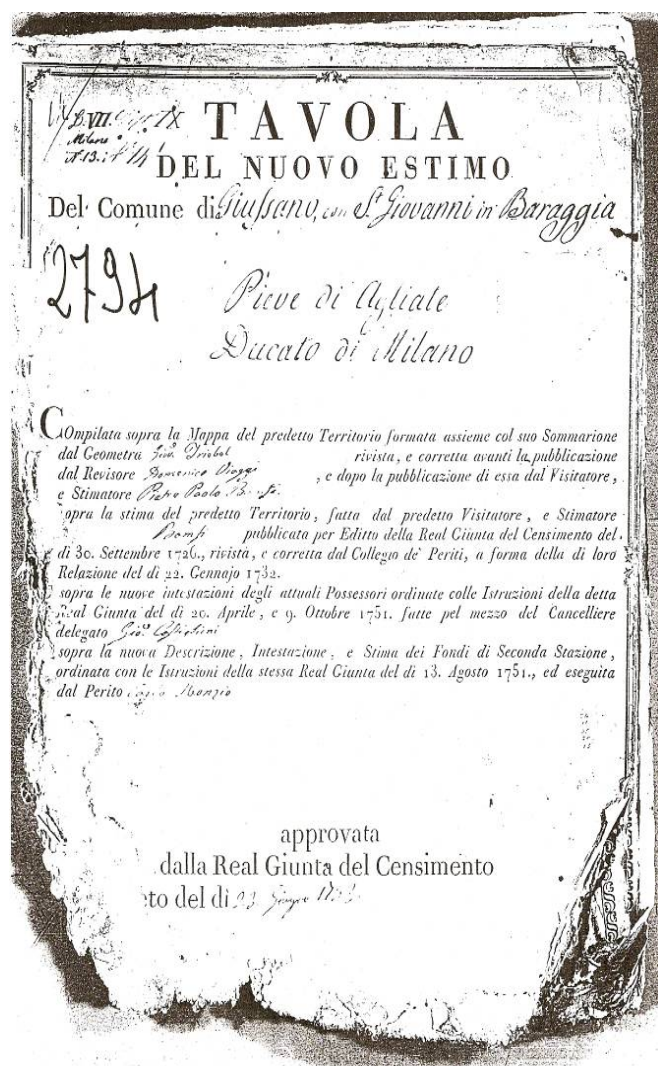 B.VII.
Milano
N.13.
TAVOLA
DEL NUOVO ESTIMO
Del Comune di Giussano, con S.t Giovanni in Baraggia
2794
Pieve di Agliate
Ducato di Milano
COmpilata sopra la Mappa del predetto Territorio formata assieme col suo Sommarione
dal Geometra Gio. rivista, e corretta avanti la pubblicazione
dal Revisore Domenico , e dopo la pubblicazione di essa dal Visitatore,
e Stimatore Pietro Paolo
opra la stima del predetto Territorio, fatta dal predetto Visitatore, e Stimatore
pubblicata per Editto della Real Giunta del Censimento del
dì 30. Settembre 1726., rivista, e corretta dal Collegio de' Periti, a forma della di loro
Relazione del dì 22. Gennajo 1732.
sopra le nuove intestazioni degli attuali Possessori ordinate colle Istruzioni della detta
Real Giunta del dì 20. Aprile, e 9. Ottobre 1751. fatte pel mezzo del Cancelliere
delegato Gio.
sopra la nuova Descrizione, Intestazione, e Stima dei Fondi di Seconda Stazione,
ordinata con le Istruzioni della stessa Real Giunta del dì 13. Agosto 1751., ed eseguita
dal Perito
approvata
dalla Real Giunta del Censimento
to del dì 23